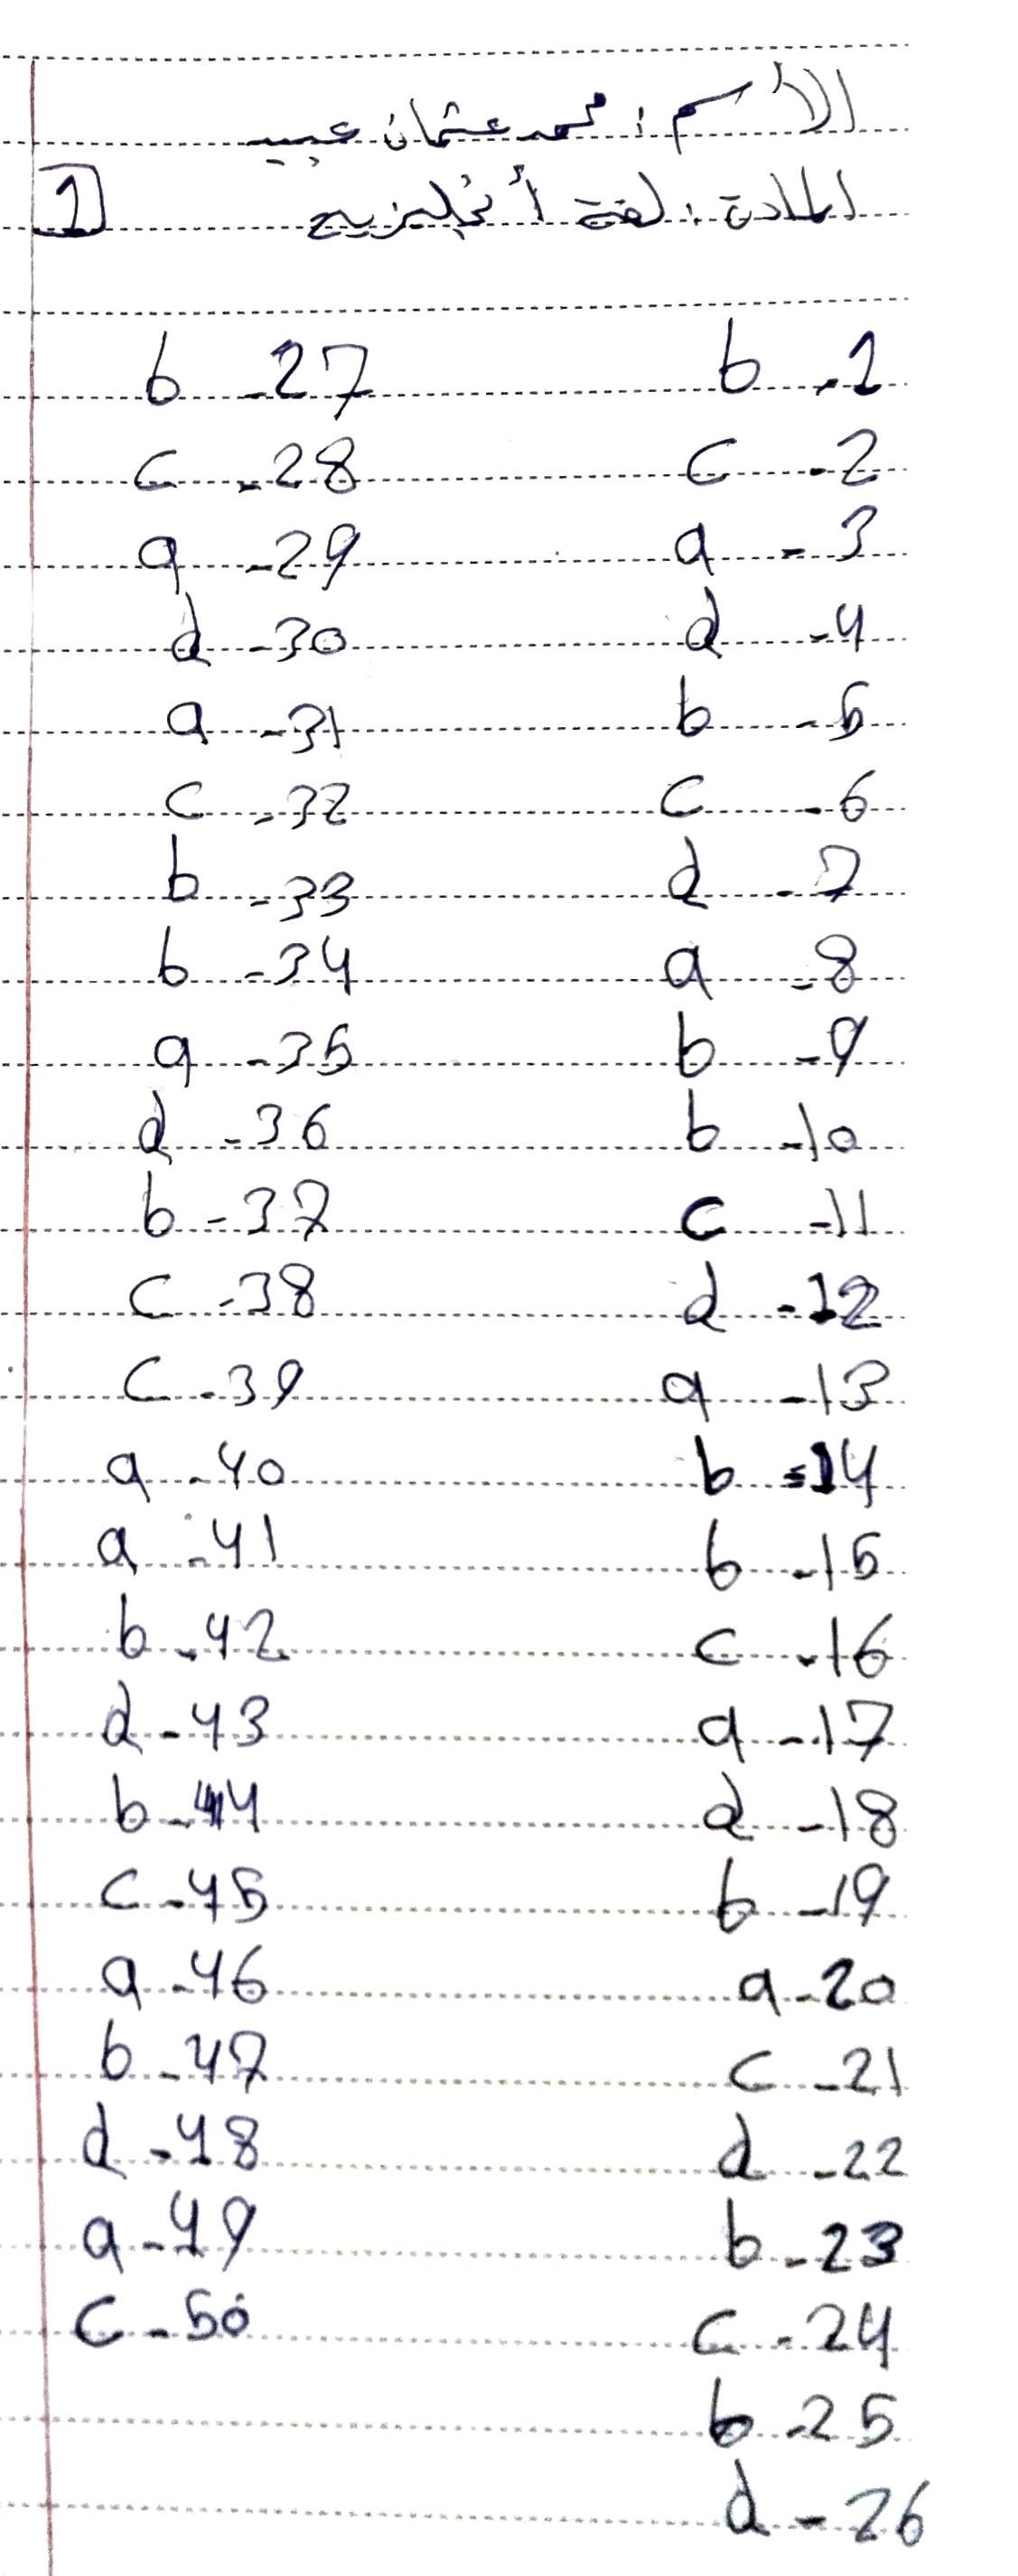 الأسم : محمد عثمان عبيد
المادة : لغة أنجليزيه
1
b - 1
c - 2
a - 3
d - 4
b - 5
c - 6
d - 7
a - 8
b - 9
b - 10
c - 11
d - 12
a - 13
b - 14
b - 15
c - 16
a - 17
d - 18
b - 19
a - 20
c - 21
d - 22
b - 23
c - 24
b - 25
d - 26
b - 27
c - 28
a - 29
d - 30
a - 31
c - 32
b - 33
b - 34
a - 35
d - 36
b - 37
c - 38
c - 39
a - 40
a - 41
b - 42
d - 43
b - 44
c - 45
a - 46
b - 47
d - 48
a - 49
c - 50